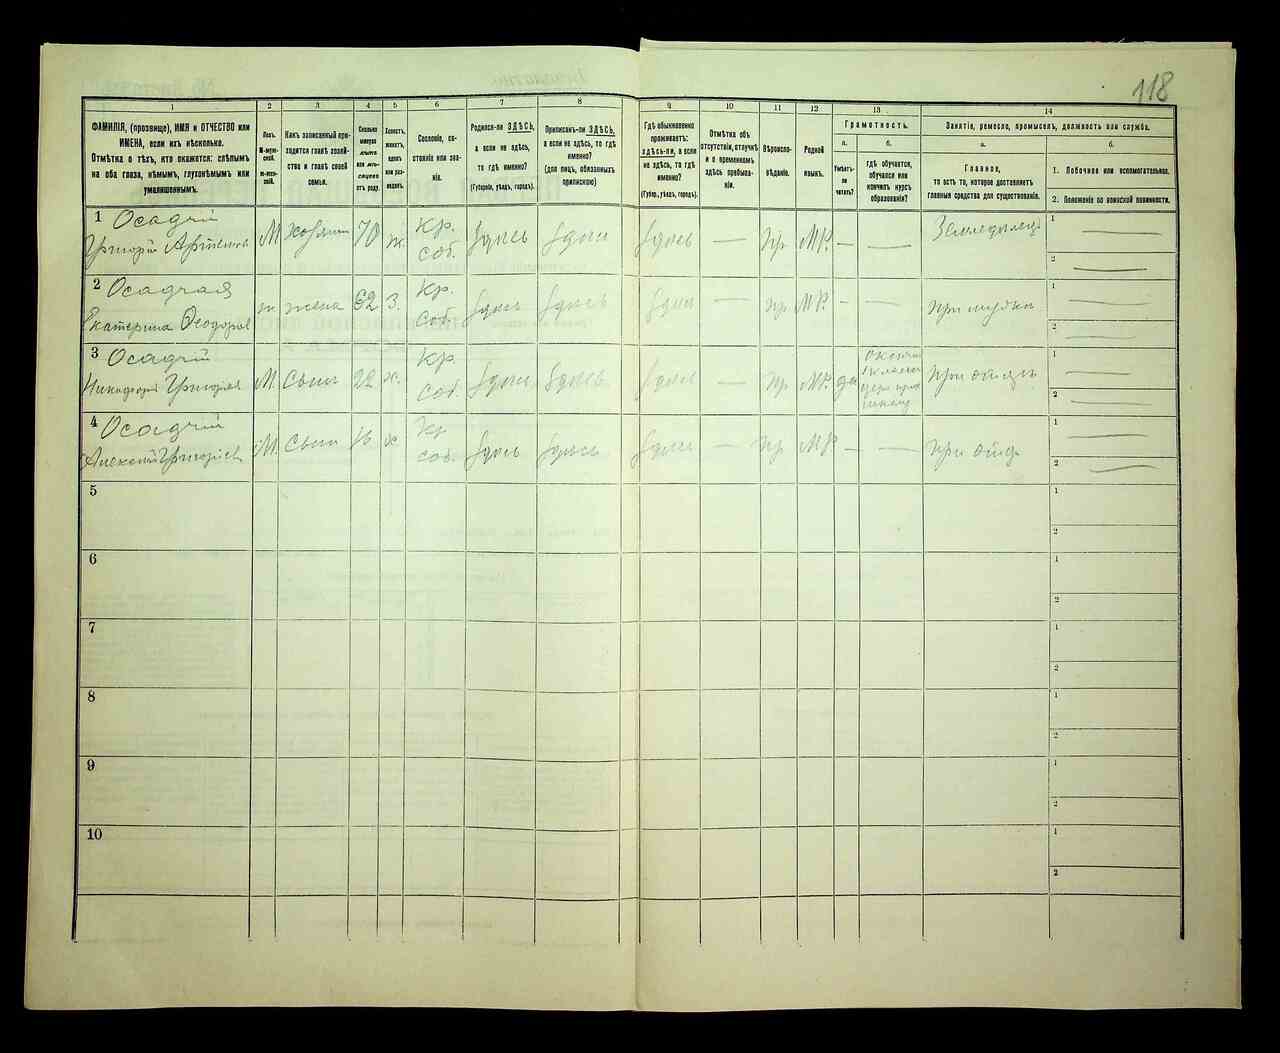 118
1 2 3 4 5 6 7 8 9 10 11 12 13 14
ФАМИЛІЯ, (прозвище), ИМЯ и ОТЧЕСТВО или
ИМЕНА, если ихъ нѣсколько.
Отмѣтка о тѣхъ, кто окажется: слѣпымъ
на оба глаза, нѣмымъ, глухонѣмымъ или
умалишеннымъ.
Полъ.
М-муж-
ской.
ж-жен-
скій.
Какъ записанный при-
ходится главѣ хозяй-
ства и главѣ своей
семьи.
Сколько
минуло
лѣтъ
или мѣ-
сяцевъ
отъ роду.
Холостъ,
женатъ,
вдовъ
или раз-
веденъ.
Сословіе, со-
стояніе или зва-
ніе.
Родился-ли ЗДѢСЬ,
а если не здѣсь,
то гдѣ именно?
(Губернія, уѣздъ, городъ).
Приписанъ-ли ЗДѢСЬ,
а если не здѣсь, то гдѣ
именно?
(для лицъ, обязанныхъ
припискою)
Гдѣ обыкновенно
проживаетъ:
здѣсь-ли, а если
не здѣсь, то гдѣ
именно?
(Губер., уѣздъ, городъ).
Отмѣтка объ
отсутствіи, отлучкѣ
и о временномъ
здѣсь пребыва-
ніи.
Вѣроиспо-
вѣданіе.
Родной
языкъ.
Грамотность.
а.
Умѣетъ-
ли
читать?
б.
гдѣ обучается,
обучался или
кончилъ курсъ
образованія?
Занятіе, ремесло, промыселъ, должность или служба.
а.
Главное,
то есть то, которое доставляетъ
главныя средства для существованія.
б.
1. Побочное или вспомогательное.
2. Положеніе по воинской повинности.
1 Осадчій
Григорій Артемовъ М хозяин 70 ж. Кр. соб. здесь здесь здесь — Пр МР. — — Земледелец 1 — 2 —
2 Осадчая
Екатерина Феодоров ж жена 62 З. Кр. соб. здесь здесь здесь — пр МР. — — При мужѣ 1 — 2 —
3 Осадчій
Никифоръ Григорьев М. Сын 22 х. Кр. соб. здесь здесь здесь — Пр МР. да При отцѣ 1 — 2 —
4 Осадчій
Алексей Григорьев М. Сын х Кр соб. здесь здесь здесь — Пр МР. — — При отцѣ 1 — 2 —
5 1 2
6 1 2
7 1 2
8 1 2
9 1 2
10 1 2